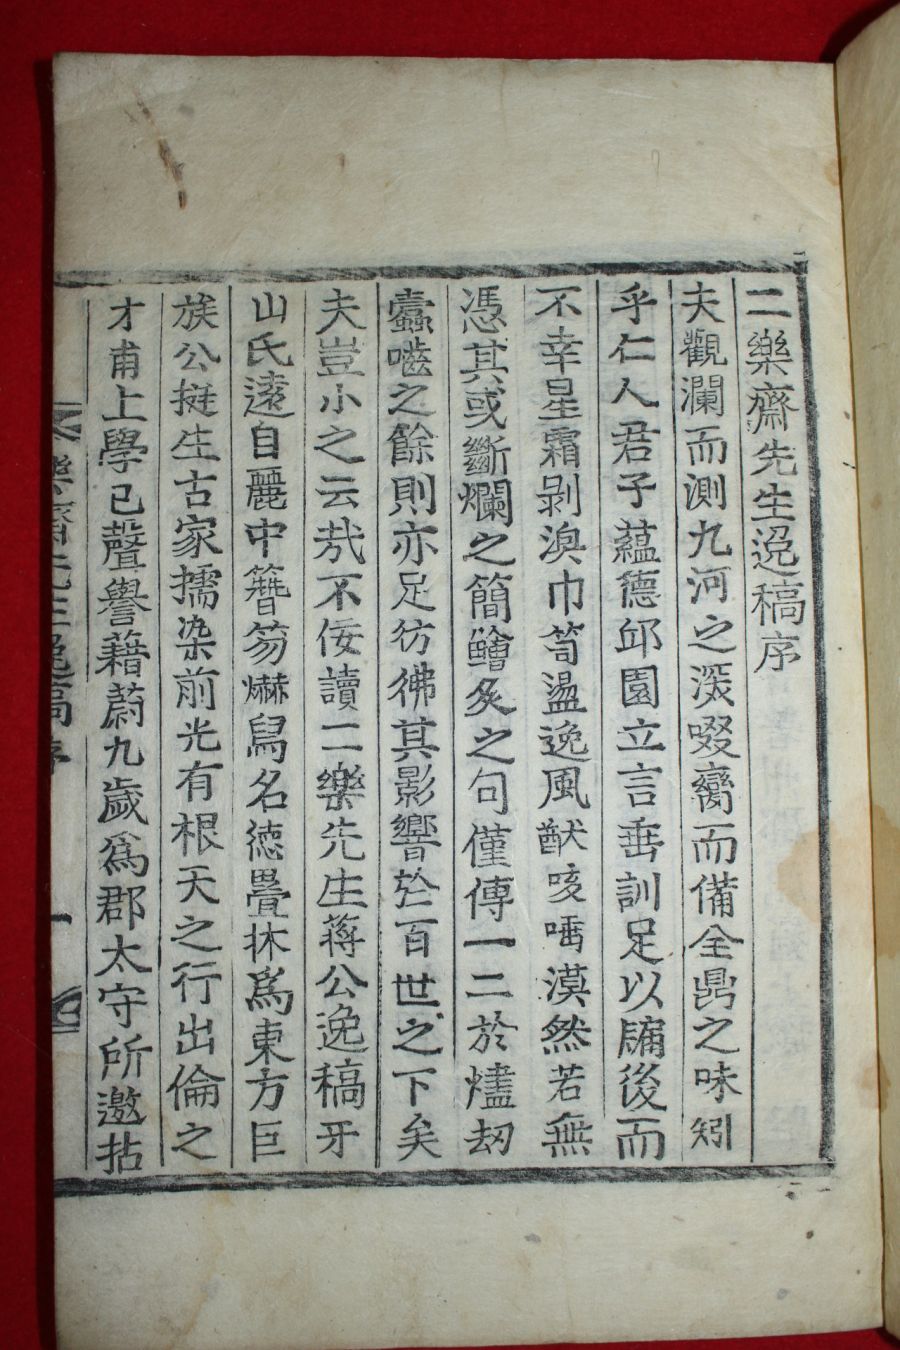 二樂齋先生逸稿序
夫觀瀾而測九河之深啜臠而備全鼎之味矧
乎仁人君子蘊德邱園立言垂訓足以牖後而
不幸星霜剝渙巾笥盪逸風猷咳唾漠然若無
憑其或斷爛之簡鱠炙之句僅傳一二於燼刼
蠹嚙之餘則亦足彷彿其影響於百世之下矣
夫豈小之云哉不佞讀二樂先生蔣公逸稿牙
山氏遠自麗中簪笏爀舃名德疊休爲東方巨
族公挺生古家擩染前光有根天之行出倫之
才甫上學已聲譽藉蔚九歲爲郡太守所邀拈
樂齋先生逸稿序 一